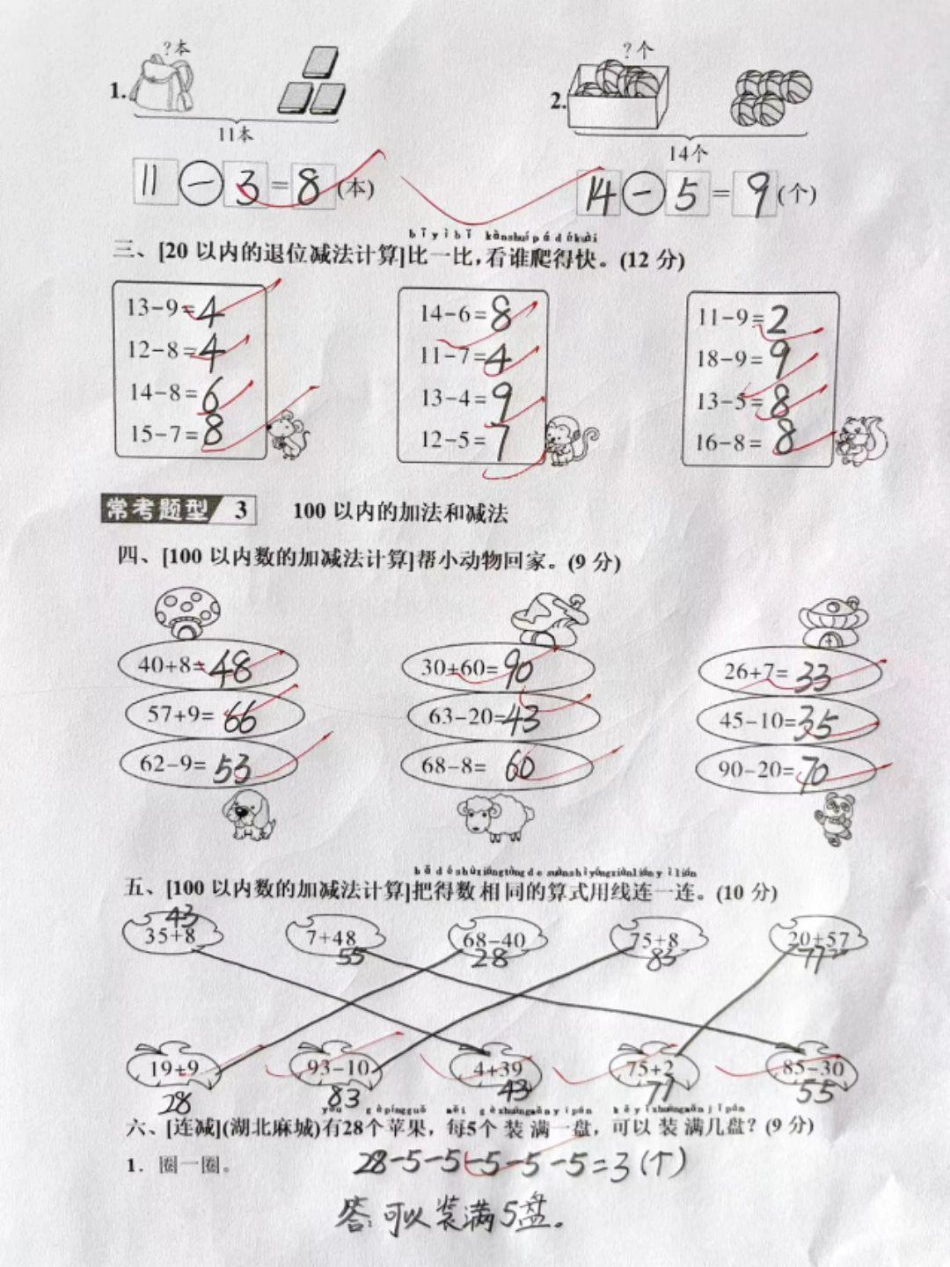 ?本 ?个
1. 2.
11本 14个
11-3=8(本) 14-5=9(个)
bǐ yì bǐ kàn shuí pá dé kuài
三、[20以内的退位减法计算]比一比,看谁爬得快。(12分)
13-9=4 14-6=8 11-9=2
12-8=4 11-7=4 18-9=9
14-8=6 13-4=9 13-5=8
15-7=8 12-5=7 16-8=8
常考题型 3 100以内的加法和减法
四、[100以内数的加减法计算]帮小动物回家。(9分)
40+8=48 30+60=90 26+7=33
57+9=66 63-20=43 45-10=35
62-9=53 68-8=60 90-20=70
五、[100以内数的加减法计算]把得数相同的算式用线连一连。(10分)
43
35+8 7+48 68-40 75+8 20+57
55 28 83 77
19+9 93-10 4+39 75+2 85-30
28 83 43 77 55
六、[连减](湖北麻城)有28个苹果，每5个装满一盘，可以装满几盘？(9分)
1. 圈一圈。 28-5-5-5-5-5=3(个)
答:可以装满5盘。